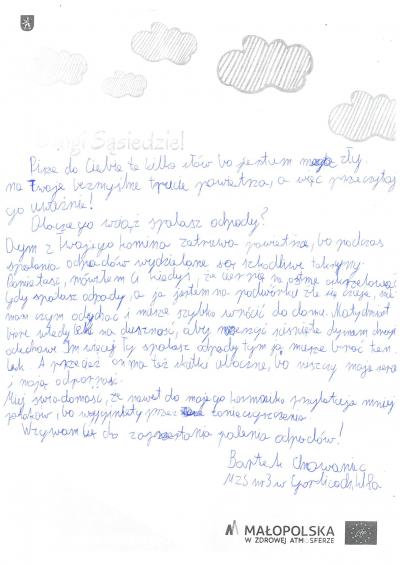 Drogi Sąsiedzie!
Piszę do Ciebie te kilka słów bo jestem mega zły
na Twoje bezmyślne trucie powietrza, a więc przeczytaj
go uważnie!
Dlaczego wciąż spalasz odpady?
Dym z Twojego komina zatruwa powietrze, bo podczas
spalania odpadów wydzielane są szkodliwe toksyny.
Pamiętasz, mówiłem Ci kiedyś, że cierpię na astmę
Gdy spalasz odpady, a ja jestem na podwórku źle się czuję, nie
mam czym oddychać i muszę szybko wrócić do domu. Natychmiast
biorę wtedy lek na duszność, aby ściśnięte dymem drogi
oddechowe. Im więcej Ty spalasz odpady tym ja muszę brać ten
lek. A przecież on ma też skutki uboczne, bo niszczy moje
i moją odporność.
Miej świadomość, że nawet do mojego karmnika przylatuje mniej
ptaków, bo wyginęłaby przez zanieczyszczenia.
Wzywam Cię do zaprzestania palenia odpadów!
Bartek Chowaniec
MZS nr 3 w Gorlicach
MAŁOPOLSKA
W ZDROWEJ ATMOSFERZE